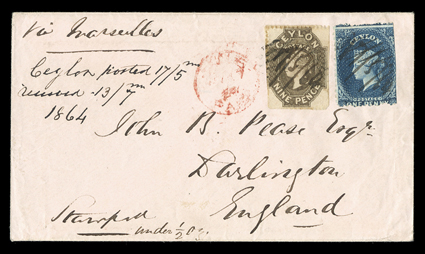 via Marseilles
Ceylon posted 17/5 m
received 13/7 m
1864
CEYLON
NINE PENCE
CEYLON
ONE PENNY
John B. Pease Esqr.
Darlington
England
Stamped
under ½ oz.